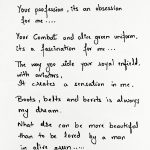 Your profession, its an obsession
for me....
Your Combat and olive green uniform,
its a fascination for me....
The way you ride your royal enfield,
with aviators,
It creates a sensation in me.
Boots, belts and berets is always
my dream.
What else can be more beautiful
than to be loved by a man
in olive green.....